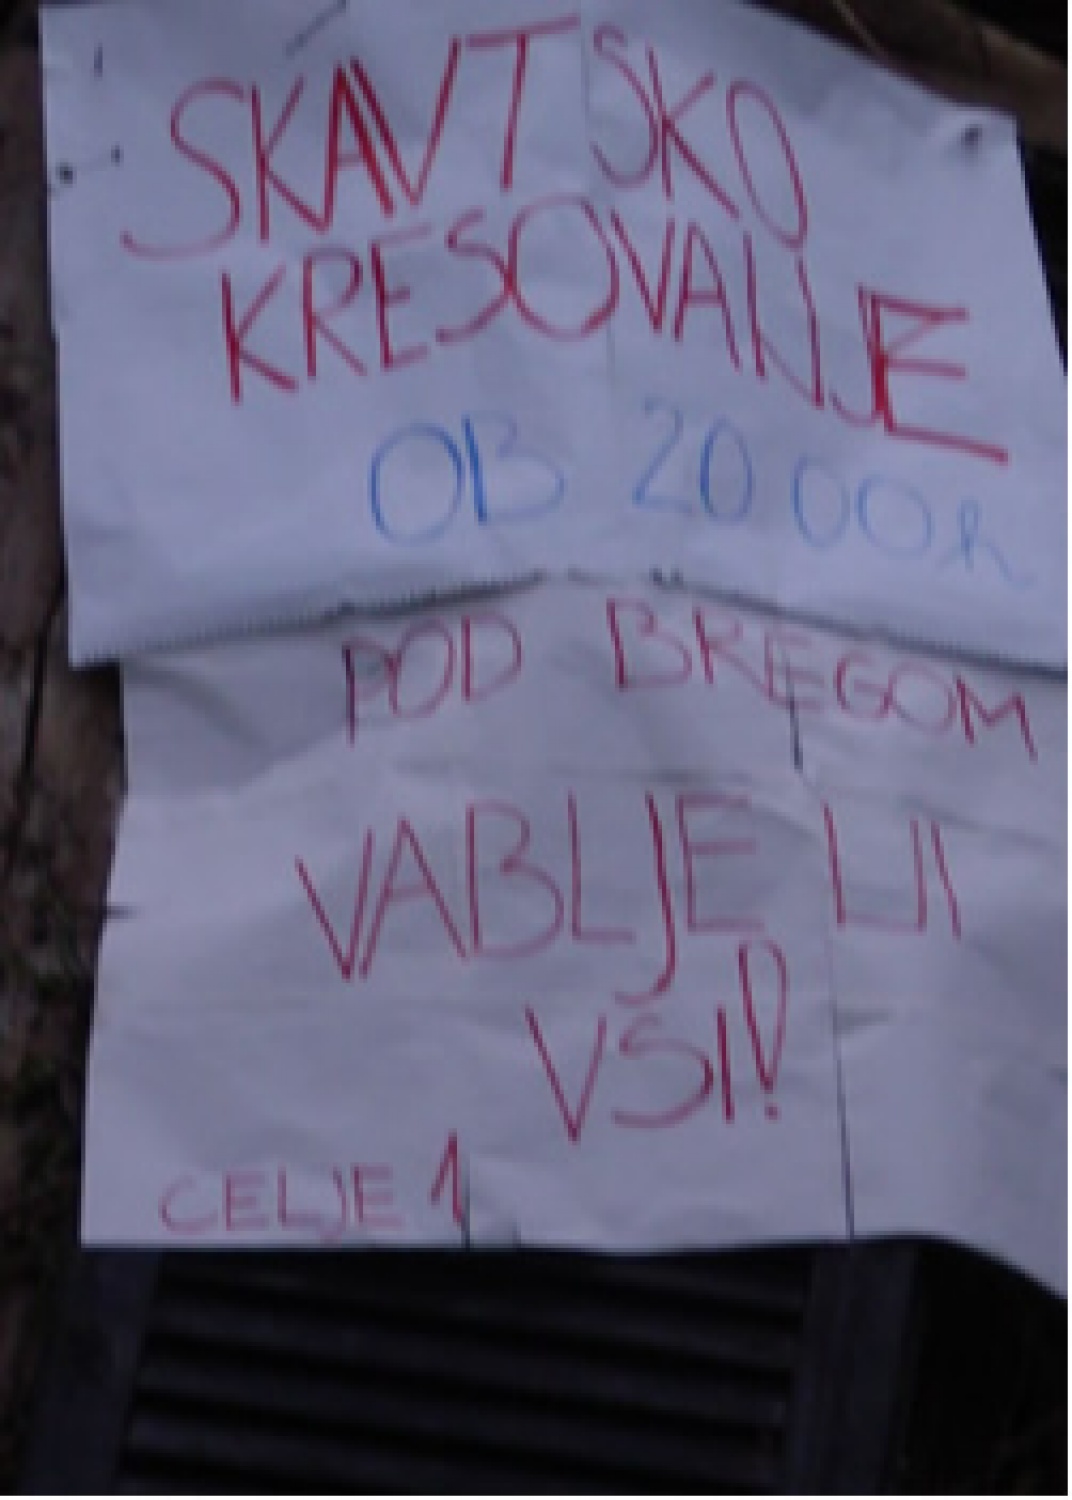 SKAVTSKO
KRESOVANJE
OB 20 00h
POD BREGOM
VABLJE LI
VSI!
CELJE 1